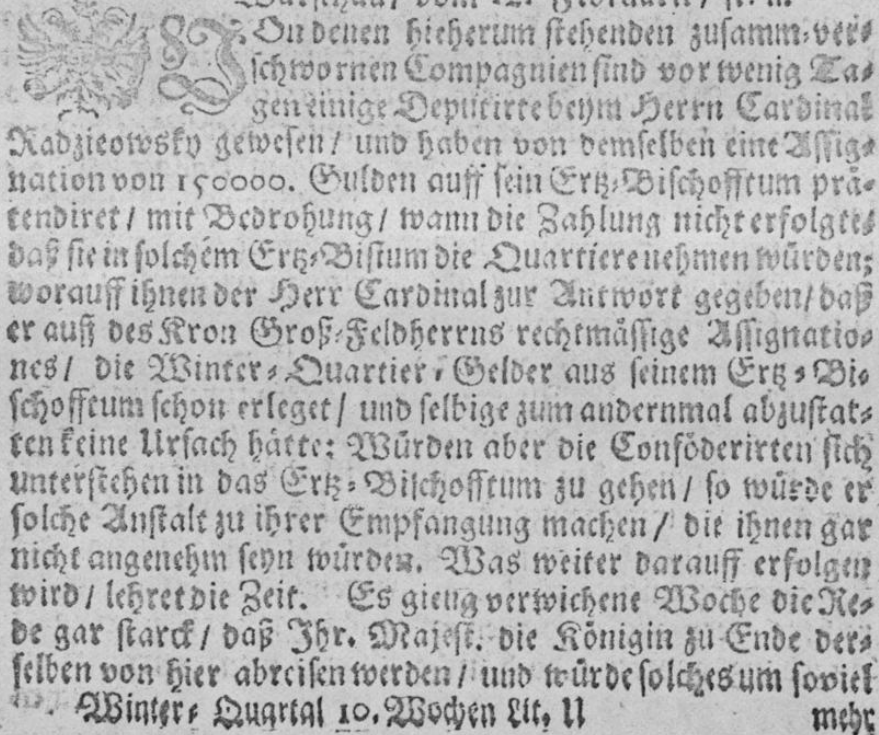 Warschau / vom 12. Februarii / st. n.
VOn denen hieherum stehenden zusamm-ver-
schwornen Compagnien sind vor wenig Ta-
gen einige Deputirte beym Herrn Cardinal
Radzieowsky gewesen / und haben von demselben eine Assig-
nation von 150000. Gulden auff sein Ertz-Bischofftum prä-
tendiret / mit Bedrohung / wann die Zahlung nicht erfolgte /
daß sie in solchem Ertz-Bistum die Quartiere nehmen würden;
worauff ihnen der Herr Cardinal zur Antwort gegeben / daß
er auff des Kron Groß-Feldherrns rechtmässige Assignatio-
nes / die Winter-Quartier-Gelder aus seinem Ertz-Bi-
schofftum schon erleget / und selbige zum andernmal abzustat-
ten keine Ursach hätte: Würden aber die Conföderirten sich
unterstehen in das Ertz-Bischofftum zu gehen / so würde er
solche Anstalt zu ihrer Empfangung machen / die ihnen gar
nicht angenehm seyn würden. Was weiter darauff erfolgen
wird / lehret die Zeit. Es gieng verwichene Woche die Re-
de gar starck / daß Ihr. Majest. die Königin zu Ende der-
selben von hier abreisen werden / und würde solches um soviel
Winter-Quartal 10. Wochen Lit. U mehr